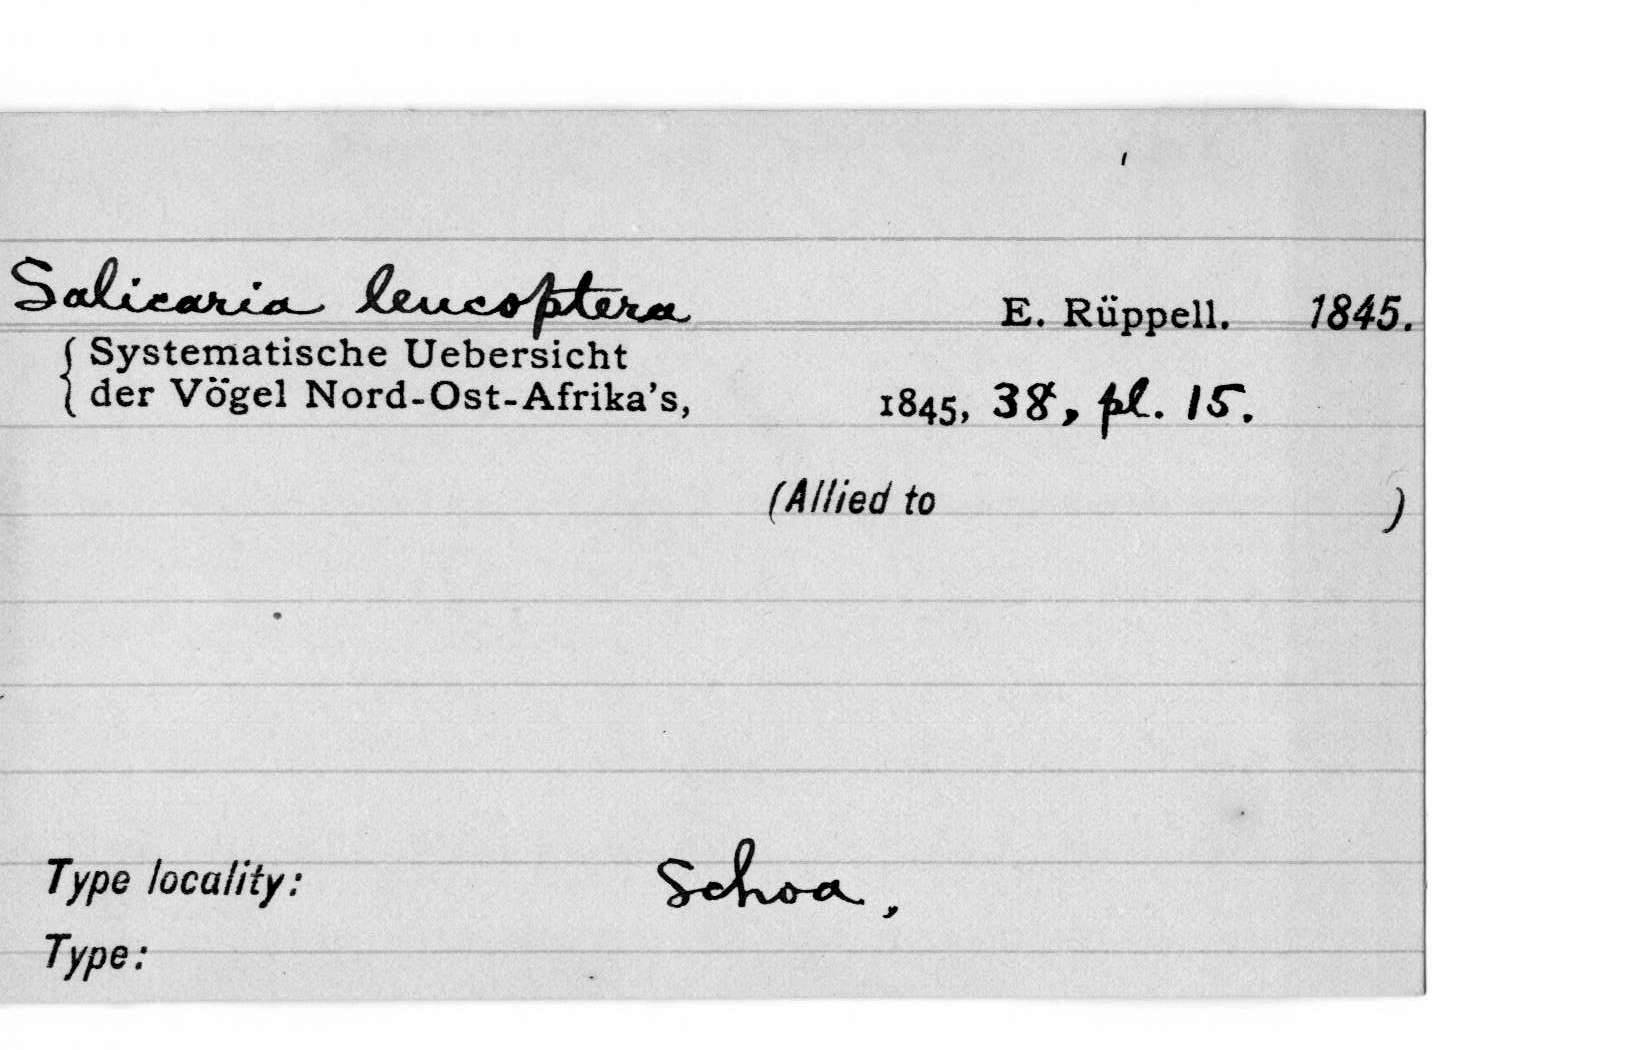 Salicaria leucoptera E. Rüppell. 1845.
Systematische Uebersicht
der Vögel Nord-Ost-Afrika's, 1845, 38, pl. 15.
(Allied to )
Type locality: Schoa,
Type: